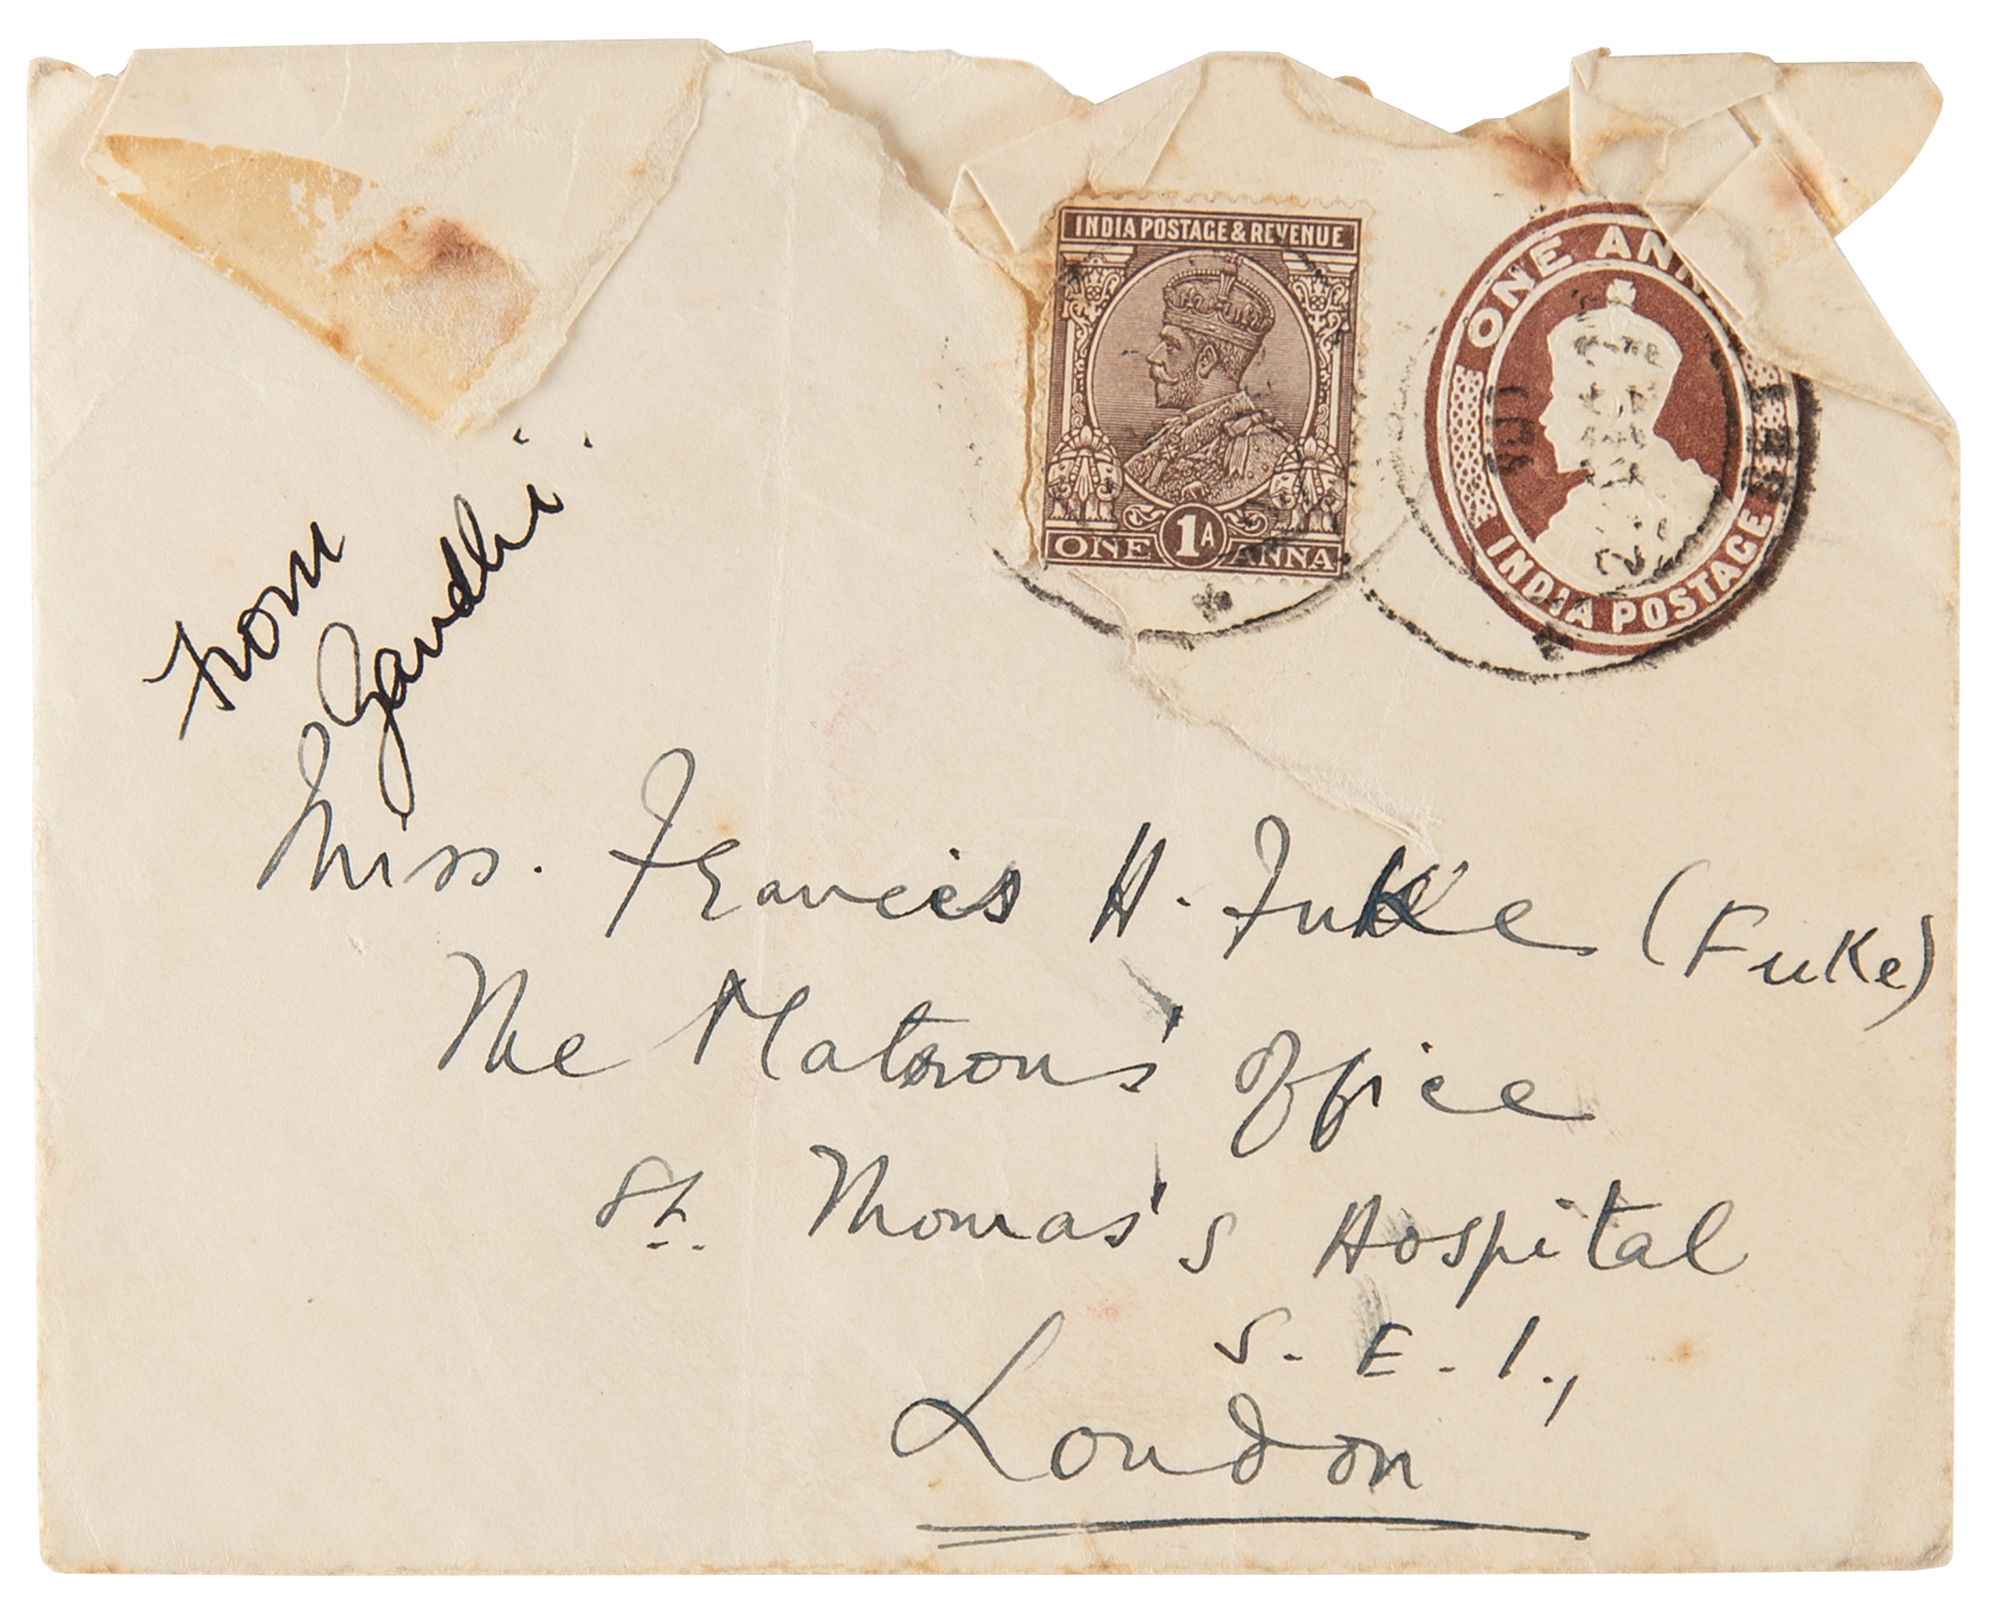 INDIA POSTAGE & REVENUE
1A
ONE ANNA
ONE ANN
INDIA POSTAGE
From
Gandhi
Miss. Francis H. Fuke (Fuke)
The Matrons' Office
St. Thomas's Hospital
S. E. 1.,
London